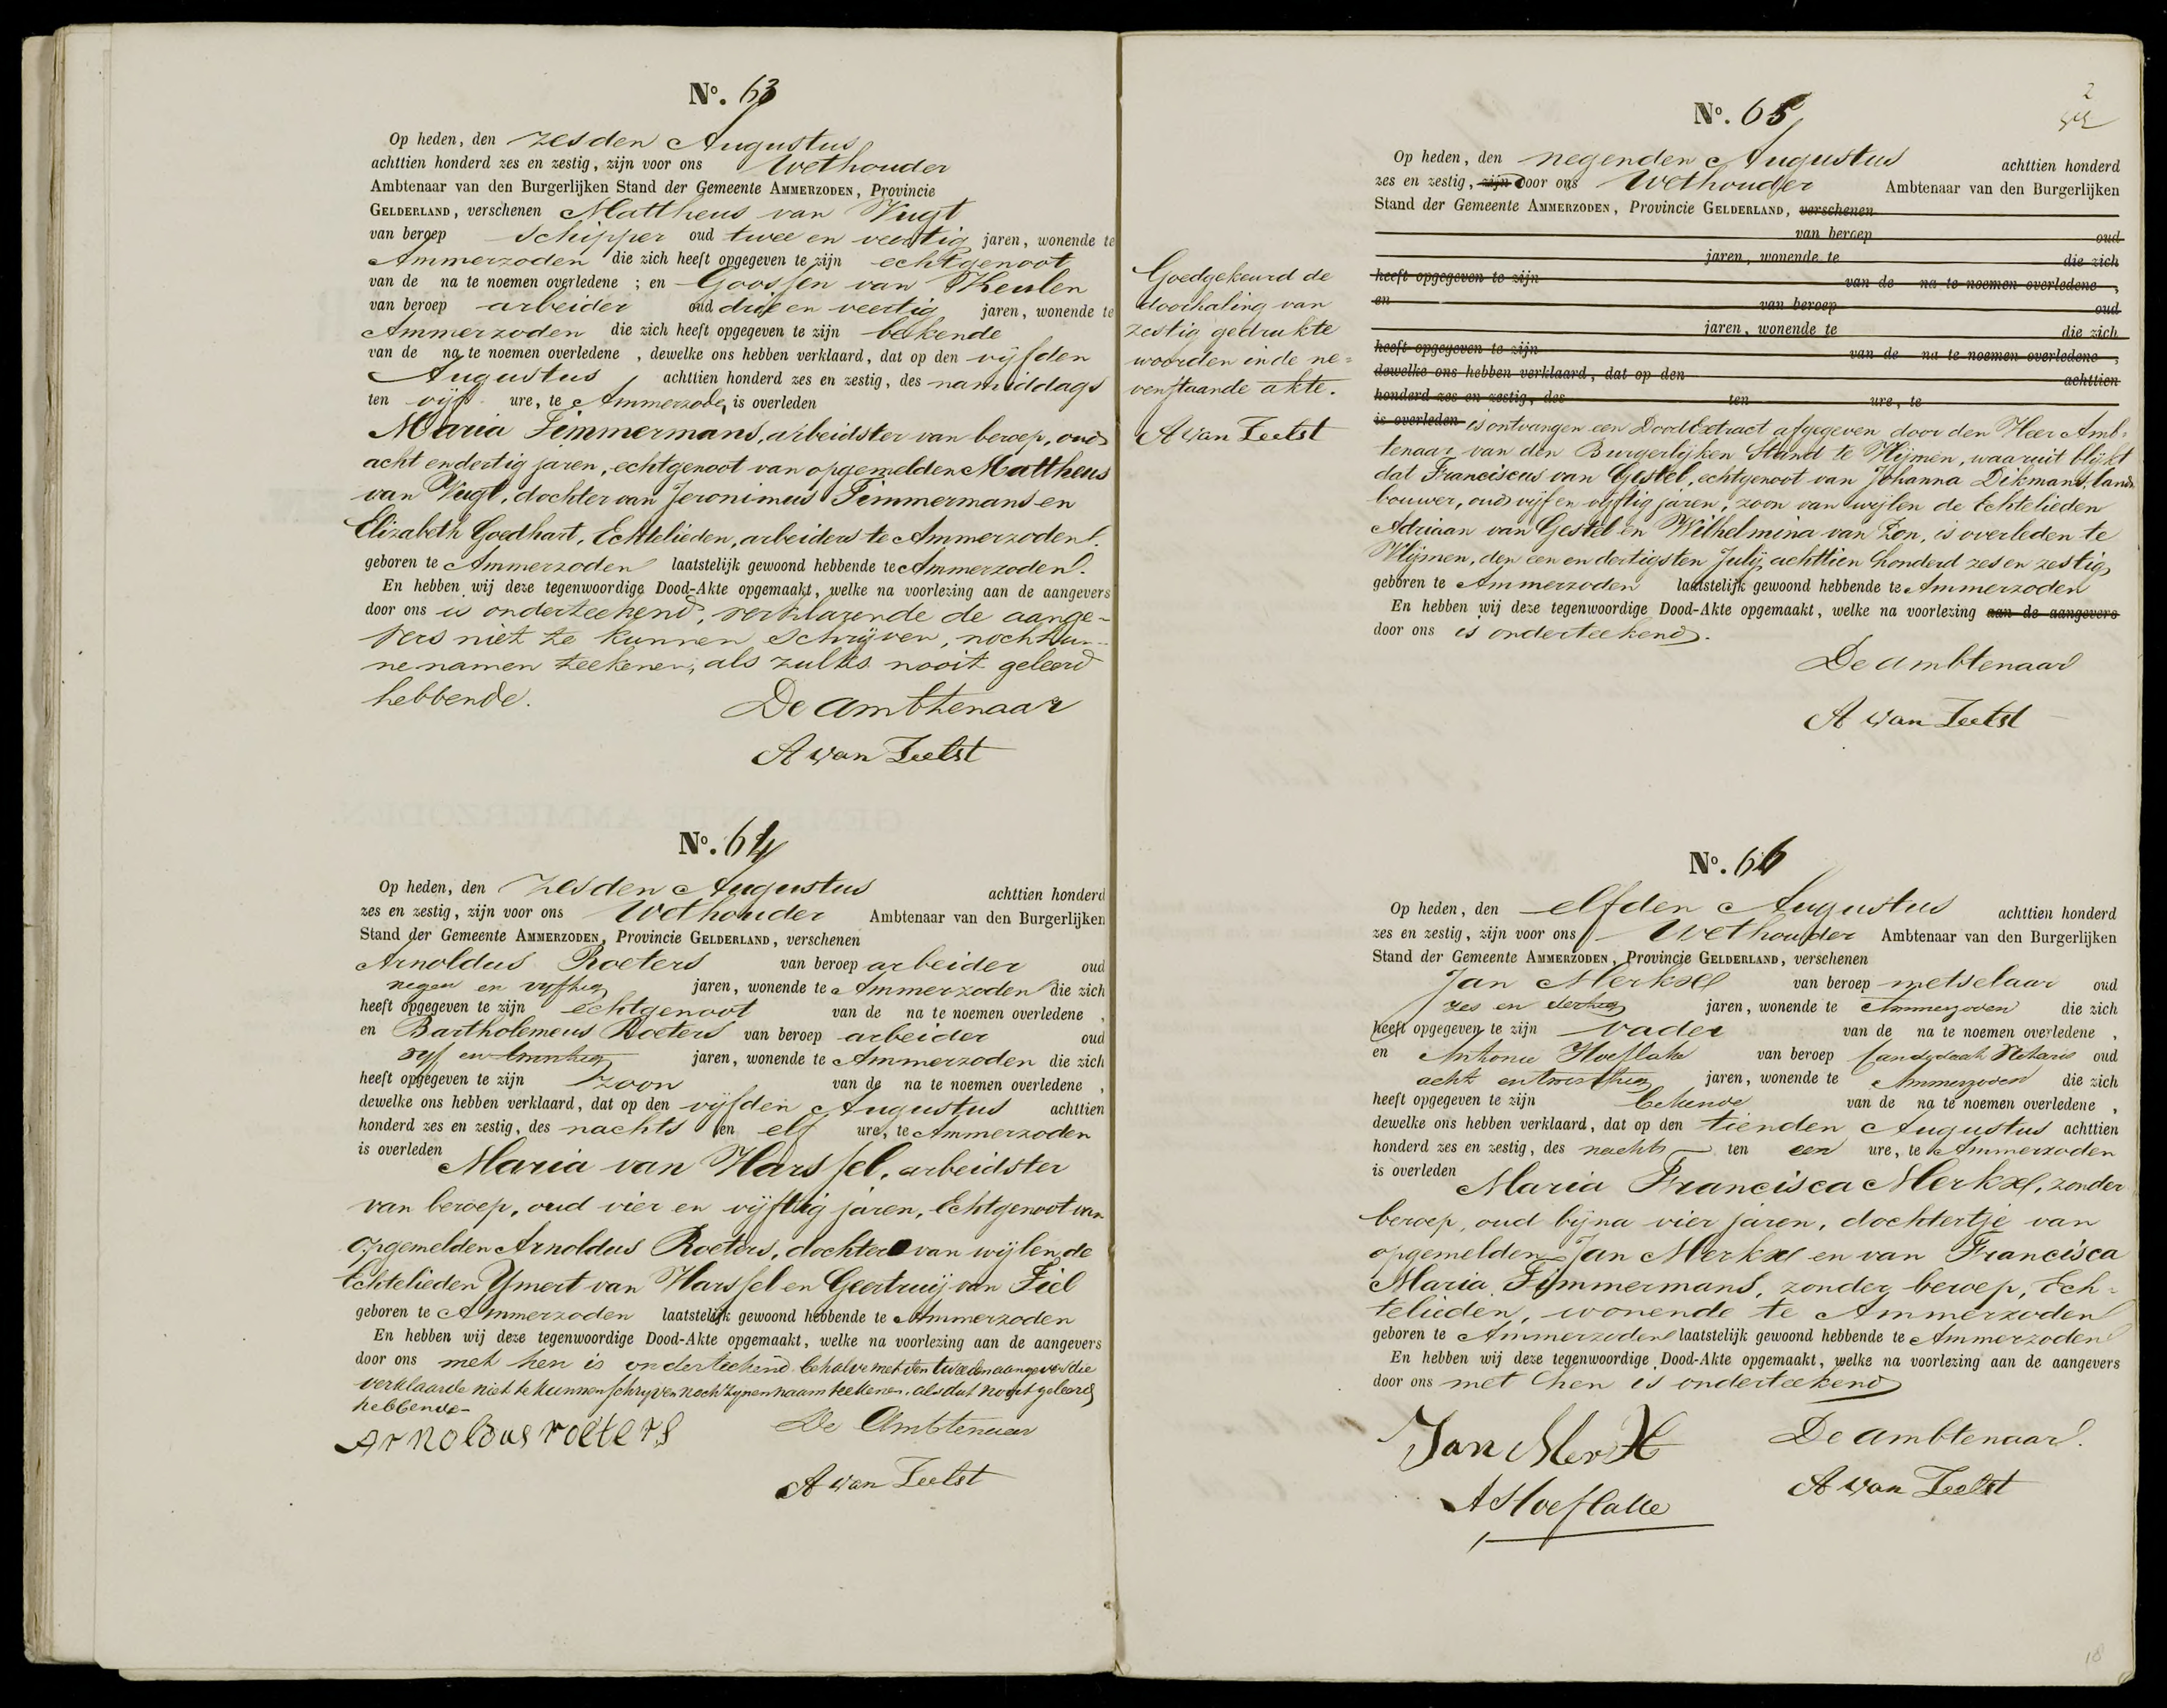 Nº. 63
Op heden, den zesden Augustus
achttien honderd zes en zestig, zijn voor ons Wethouder
Ambtenaar van den Burgerlijken Stand der Gemeente AMMERZODEN, Provincie
GELDERLAND, verschenen Mattheus van Vugt
van beroep Schipper oud twee en veertig jaren, wonende te
Ammerzoden die zich heeft opgegeven te zijn echtgenoot
van de na te noemen overledene ; en Goossen van Heulen
van beroep arbeider oud drie en veertig jaren, wonende te
Ammerzoden die zich heeft opgegeven te zijn bekende
van de na te noemen overledene , dewelke ons hebben verklaard, dat op den vijfden
Augustus achttien honderd zes en zestig, des namiddags
ten vijf ure, te Ammerzoden is overleden
Maria Timmermans, arbeidster van beroep, oud
acht en dertig jaren, echtgenoot van opgemelden Mattheus
van Vugt, dochter van Jeronimus Timmermans en
Elizabeth Goedhart, Echtelieden, arbeiders te Ammerzoden.
geboren te Ammerzoden laatstelijk gewoond hebbende te Ammerzoden.
En hebben wij deze tegenwoordige Dood-Akte opgemaakt, welke na voorlezing aan de aangevers
door ons is onderteekend, verklarende de aange-
vers niet te kunnen schrijven, noch hun-
ne namen teekenen, als zulks nooit geleerd
hebbende.
De ambtenaar
A van Zeelst
Nº. 64
Op heden, den zesden Augustus achttien honderd
zes en zestig, zijn voor ons Wethouder Ambtenaar van den Burgerlijken
Stand der Gemeente AMMERZODEN, Provincie GELDERLAND, verschenen
Arnoldus Roeters van beroep arbeider oud
negen en vyftig jaren, wonende te Ammerzoden die zich
heeft opgegeven te zijn echtgenoot van de na te noemen overledene ,
en Bartholemeus Roeters van beroep arbeider oud
vyf en twintig jaren, wonende te Ammerzoden die zich
heeft opgegeven te zijn zoon van de na te noemen overledene ,
dewelke ons hebben verklaard, dat op den vijfden Augustus achttien
honderd zes en zestig, des nachts ten elf ure, te Ammerzoden
is overleden Maria van Harssel, arbeidster
van beroep, oud vier en vijftig jaren, Echtgenoot van
opgemelden Arnoldus Roeters, dochter van wijlen de
Echtelieden Ymert van Harssel en Geertruij van Tiel
geboren te Ammerzoden laatstelijk gewoond hebbende te Ammerzoden
En hebben wij deze tegenwoordige Dood-Akte opgemaakt, welke na voorlezing aan de aangevers
door ons met hen is onderteekend behalve met den tweeden aangever die
verklaarde niet te kunnen schryven noch zynen naam teekenen, als dat nooit geleerd
hebbende
Arnoldus roeters
De Ambtenaar
A van Zeelst
Nº. 65
Op heden, den negenden Augustus achttien honderd
zes en zestig, zijn voor ons Wethouder Ambtenaar van den Burgerlijken
Stand der Gemeente AMMERZODEN, Provincie GELDERLAND, verschenen
van beroep oud
jaren, wonende te die zich
heeft opgegeven te zijn van de na te noemen overledene ,
en van beroep oud
jaren, wonende te die zich
heeft opgegeven te zijn van de na te noemen overledene ,
dewelke ons hebben verklaard, dat op den achttien
honderd zes en zestig, des ten ure, te
is overleden is ontvangen een Dood Extract afgegeven door den Heer Amb-
tenaar van den Burgerlijken Stand te Vlijmen, waaruit blijkt
dat Franciscus van Gestel, echtgenoot van Johanna Dikmans, land-
bouwer, oud vijf en vijftig jaren, zoon van wijlen de Echtelieden
Adriaan van Gestel en Wilhelmina van Zon, is overleden te
Vlijmen, den een en dertigsten July achttien honderd zes en zestig,
geboren te Ammerzoden laatstelijk gewoond hebbende te Ammerzoden
En hebben wij deze tegenwoordige Dood-Akte opgemaakt, welke na voorlezing aan de aangevers
door ons is onderteekend.
De ambtenaar
A van Zeelst
Goedgekeurd de
doorhaling van
zestig gedrukte
woorden in de ne-
venstaande akte.
A van Zeelst
Nº. 66
Op heden, den elfden Augustus achttien honderd
zes en zestig, zijn voor ons Wethouder Ambtenaar van den Burgerlijken
Stand der Gemeente AMMERZODEN, Provincie GELDERLAND, verschenen
Jan Merkx van beroep metselaar oud
zes en dertig jaren, wonende te Ammerzoden die zich
heeft opgegeven te zijn vader van de na te noemen overledene ,
en Antonie Hoeflake van beroep Candydaat Notaris oud
acht en twintig jaren, wonende te Ammerzoden die zich
heeft opgegeven te zijn bekende van de na te noemen overledene ,
dewelke ons hebben verklaard, dat op den tienden Augustus achttien
honderd zes en zestig, des nachts ten een ure, te Ammerzoden
is overleden Maria Francisca Merkx, zonder
beroep, oud bijna vier jaren, dochtertje van
opgemelden Jan Merkx en van Francisca
Maria Timmermans, zonder beroep, Ech-
telieden, wonende te Ammerzoden
geboren te Ammerzoden laatstelijk gewoond hebbende te Ammerzoden
En hebben wij deze tegenwoordige Dood-Akte opgemaakt, welke na voorlezing aan de aangevers
door ons met hen is onderteekend
Jan Merkx
De ambtenaar.
A Hoeflake
A van Zeelst
18